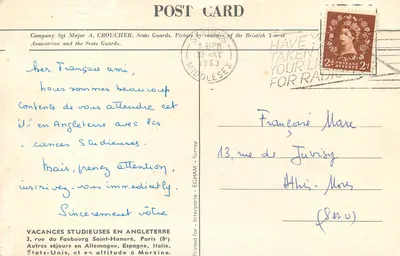 POST CARD
Company Sgt Major A. CROUCHER. Scots Guards. Picture by courtesy of the British Travel
Association and the Scots Guards.
Cher Français ami,
Nous sommes beaucoup
contents de vous attendre cet
été en Angleterre avec les
cances Studieuses.
Mais, prenez attention,
inscrivez-vous immediatly.
Sincerement vôtre
VACANCES STUDIEUSES EN ANGLETERRE
3, rue du Faubourg Saint-Honoré, Paris (8e)
Autres séjours en Allemagne, Espagne, Italie,
Etats-Unis, et en altitude à Morzine.
Printed for - Interparis - EGHAM - Surrey
MAY
1963
MIDDLESEX
HAVE YOU
TAKEN
YOUR
FOR RADIO
POSTAGE
REVENUE
2d
2d
Françoise Marc
13, rue de Juvisy
Athis-Mons
(S et O)